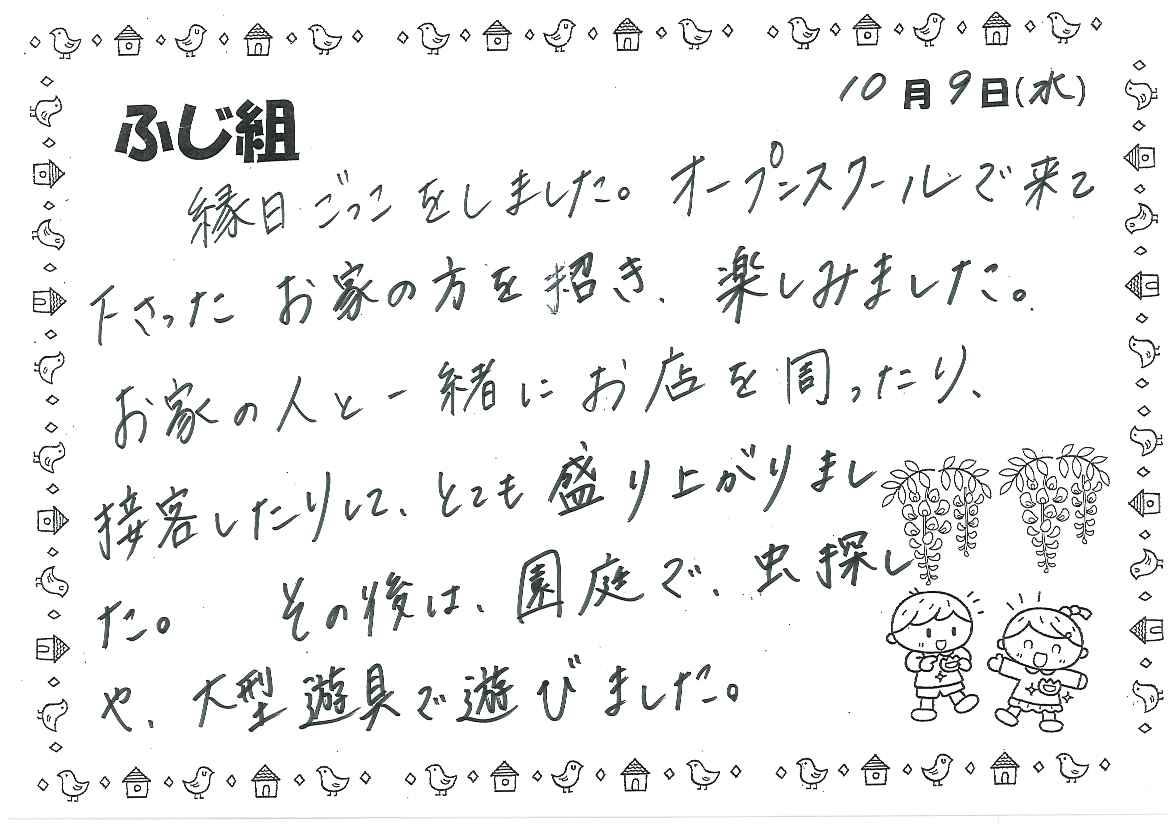 10月9日(水)
ふじ組
縁日ごっこをしました。オープンスクールで来て
下さった お家の方を招き、楽しみました。
お家の人と一緒にお店を周ったり、
接客したりして、とても盛り上がりまし
た。 その後は、園庭で、虫探し
や、大型遊具で遊びました。